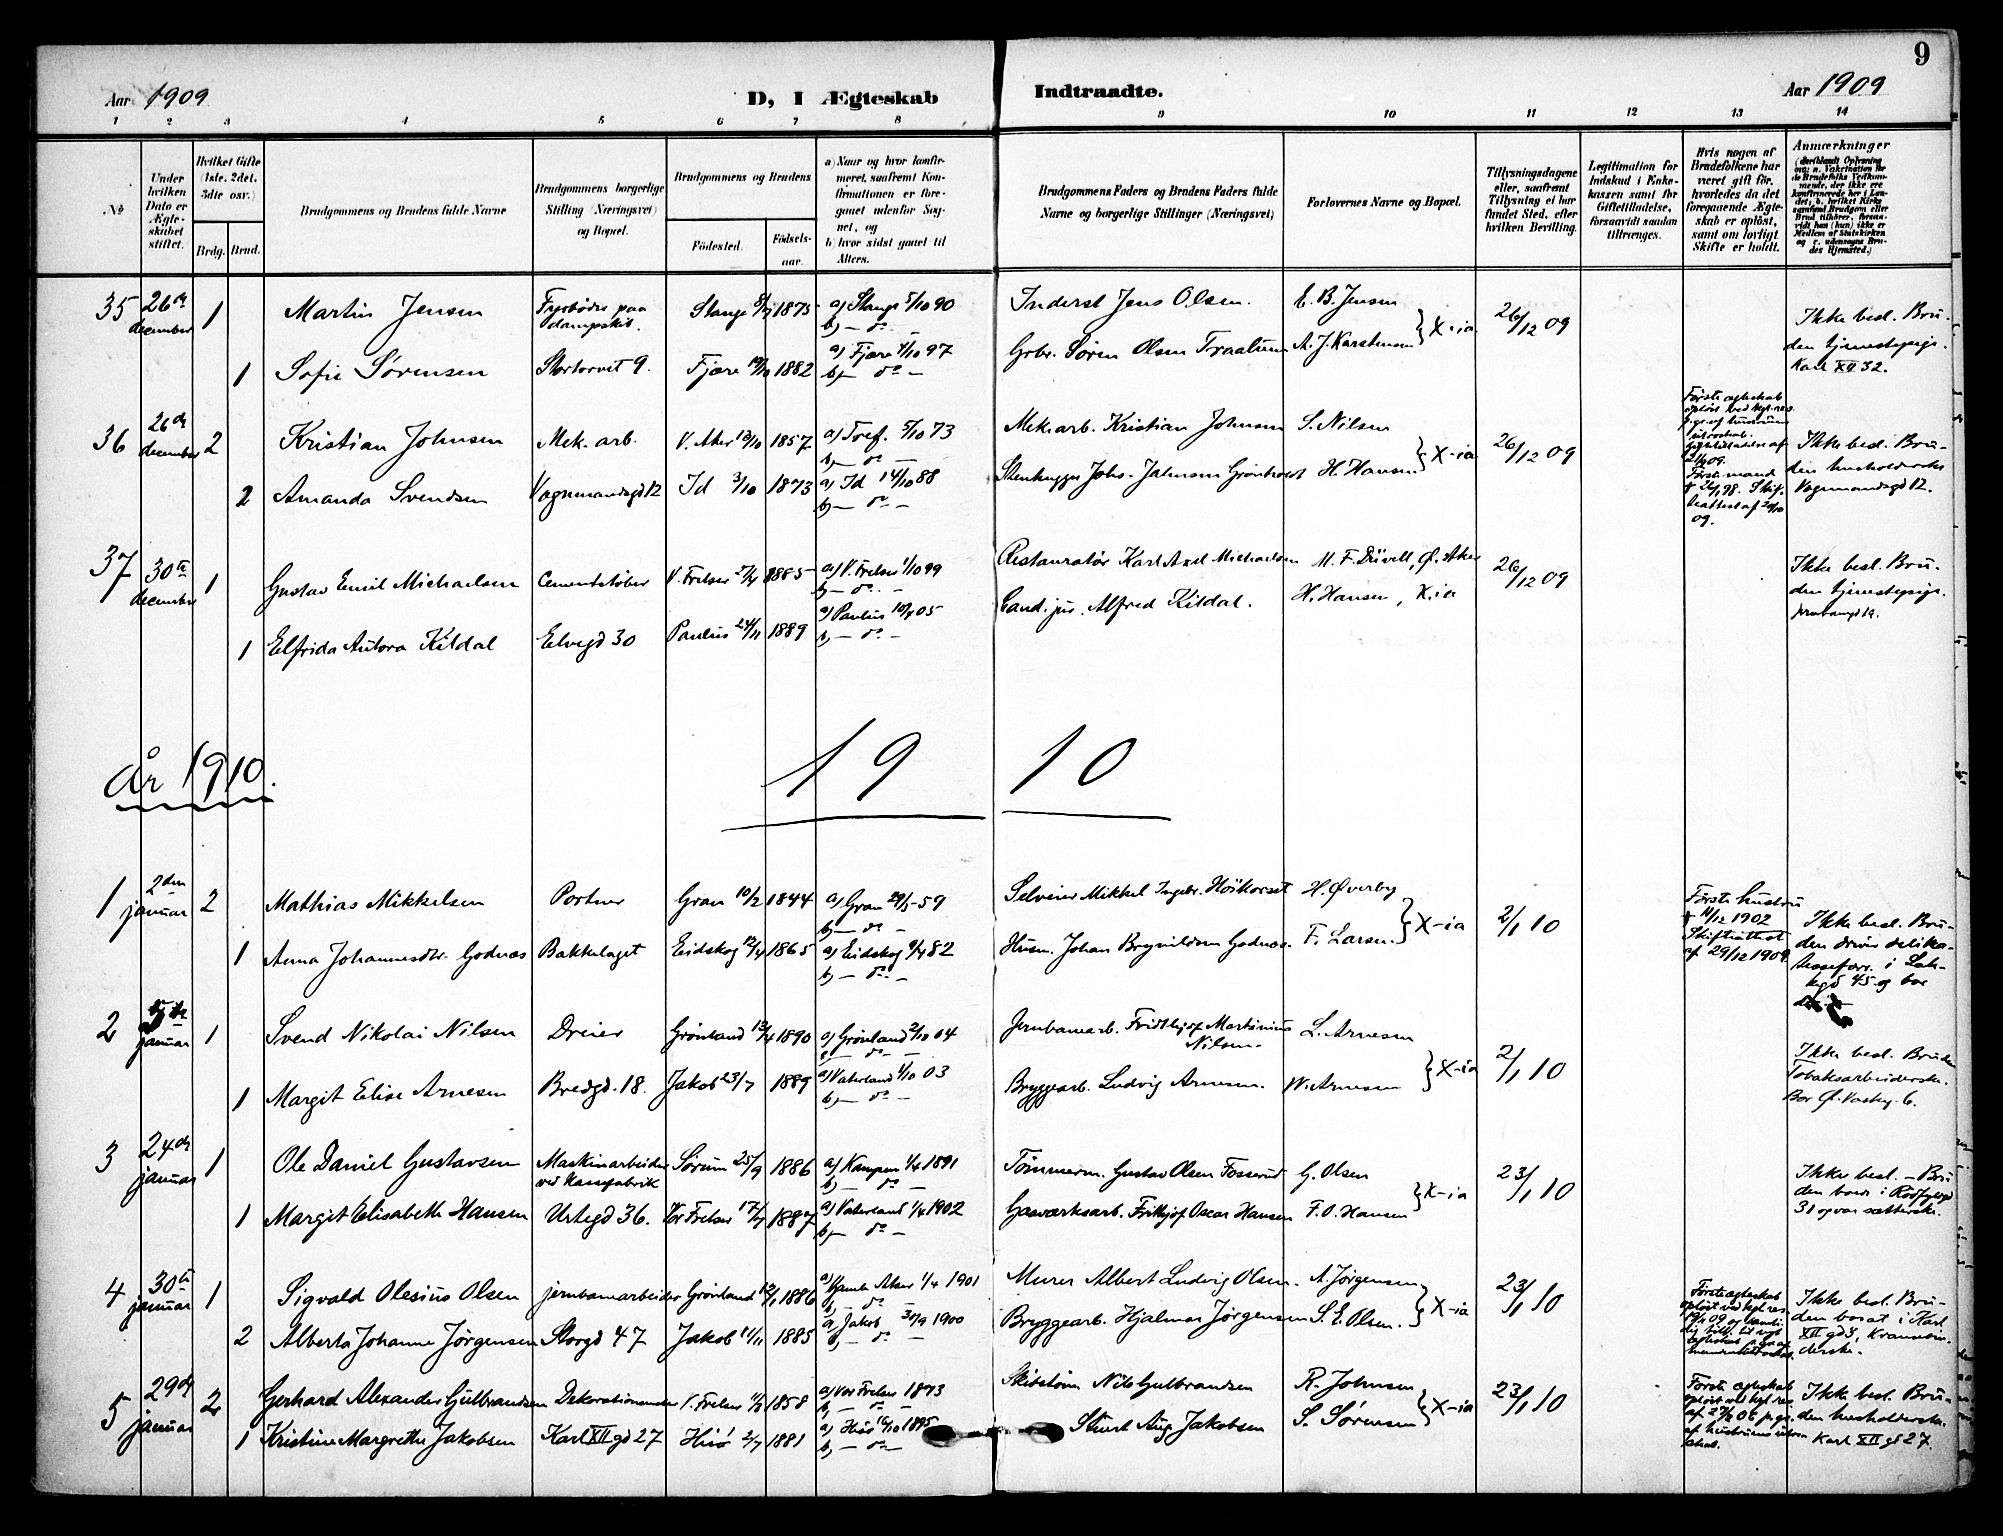 9
Aar 1909
D, I Ægteskab Indtraadte.
Aar 1909
1 2 3 4 5 6 7 8 9 10 11 12 13 14
№
Under hvilken Dato er Ægteskabet stiftet.
Hvilket Gifte (1ste, 2det, 3die osv.)
Brdg. Brud.
Brudgommens og Brudens fulde Navne
Brudgommens borgerlige Stilling (Næringsvei) og Bopæl.
Brudgommens og Brudens
Födested. Födselsaar.
a) Naar og hvor konfirmeret, saafremt Konfirmationen er foregaaet udenfor Sognet, og
b) hvor sidst gaaet til Alters.
Brudgommens Faders og Brudens Faders fulde Navne og borgerlige Stillinger (Næringsvei)
Forlovernes Navne og Bopæl.
Tillysningsdagene eller, saafremt Tillysning ei har fundet Sted, efter hvilken Bevilling.
Legitimation for Indskud i Enkekassen samt for Giftetilladelse, forsaavidt saadan tiltrænges.
Hvis nogen af Brudefolkene har været gift för, hvorledes da det foregaaende Ægteskab er oplöst, samt om lovligt Skifte er holdt.
Anmærkninger
35 26de december 1 Martin Jensen Fyrbøder paa dampskib. Stange 8/7 1875 a) Stange 5/10 90 b) — do — Inderst Jens Olsen. E. B. Jensen X-ia 26/12 09 Ikke besl. Bruden tjenestepige. Karl XII 32.
1 Sofie Sørensen Stortorvet 9. Fjære 19/10 1882 a) Fjære 4/10 97 b) — do — Grbr. Søren Olsen A. J. Karstensen
36 26de december 2 Kristian Johnsen Mek. arb. V. Aker 13/10 1857 a) Tref. 5/10 73 b) — do — Mek. arb. Kristian Johnsen S. Nilsen X-ia 26/12 09 Ikke besl. Bruden husholderske Vognmandsgd 12.
2 Amanda Svendsen Vognmandsgd 12 Id 3/10 1873 a) Id 14/10 88 b) — do — Stenhugger Johs. H. Hansen
Første ægteskab opløst ved kgl. res.
Første mand
37 30te december 1 Gustav Emil Michaelsen Cementstøber V. Frelser 1885 a) V. Frelser 1/10 99 b) — do — Restauratør Karl Axel Michaelsen M. F. Düvell, Ø. Aker 26/12 09 Ikke besl. Bruden tjenestepige.
1 Elfrida Autora Kildal Elvegd 30 Paulus 24/11 1889 a) Paulus 05 b) — do — Cand. jur. Alfred Kildal. H. Hansen, X.ia
År 1910. 19 10
1 2den januar 2 Mathias Mikkelsen Portner Gran 10/2 1844 a) Gran 29/5 59 b) — do — Selveier Mikkel Ingebr. H. Øverby X-ia 2/1 10 Første hustru † 11/12 1902 Skifteattest af 29/12 1909. Ikke besl. Bruden driver delikatesseforr. i Lakkegd 45 og bor
1 Anna Johannesdtr. Godnæs Bakkelaget Eidskog 12/4 1865 a) Eidskog 9/4 82 b) — do — Husm. Johan Brynildsen Godnæs. F. Larsen.
2 januar 1 Svend Nikolai Nilsen Dreier Grønland 13/4 1890 a) Grønland 2/10 04 — do — Jernbanearb. Fridthjof Martinius Nilsen. L. Arnesen X-ia 2/1 10 Ikke besl. Bruden Tobaksarbeiderske. Bor Ø. Vaskeg. 6.
1 Margit Elise Arnesen Bredgd. 18. Jakob 23/7 1889 a) Vaterland 1/10 03 b) — do — Bryggearb. Ludvig Arnesen. W. Arnesen
3 24de januar 1 Ole Daniel Gustavsen Maskinarbeider ved Sørum 25/9 1886 a) Kampen 1/4 1891 b) — do — Tømmerm. Gustav Olsen Fosserud G. Olsen X-ia 23/1 10 Ikke besl. — Bruden boede i Rødfyldgd 31 og var sætterske.
1 Margit Elisabeth Hansen Urtegd 36. Vor Frelser 1887 a) Vaterland 1/4 1902 b) — do — Gasværksarb. Frithjof Oscar Hansen F. O. Hansen
4 30te januar 1 Sigvald Olesius Olsen jernbanearbeider Grønland 1886 a) Gamle Aker 1/4 1901 b) — do — Murer Albert Ludvig Olsen. A. Jørgensen X-ia 23/1 10 Ikke besl. Bruden bosat i Karl XII gd 3,
2 Alberta Johanne Jørgensen Storgd 47 Jakob 11/11 1885 a) Jakob 30/9 1900 b) — do — Bryggearb. Hjalmar Jørgensen S. E. Olsen.
Første ægteskab opløst ved kgl. res.
5 29de januar 2 Gerhard Alexander Gulbrandsen Dekorationsmaler V. Frelser 1858 a) Vor Frelser 1873 b) — do — Nils Gulbrandsen R. Johnsen X-ia 23/1 10 Første ægteskab opløst ved kgl. res. Ikke besl. Bruden husholderske. Karl XII gd 27.
1 Kristine Margrethe Jakobsen Karl XII gd 27 Hisø 2/7 1881 a) Hisø 1895 b) — do — Stuert Aug. Jakobsen S. Sørensen